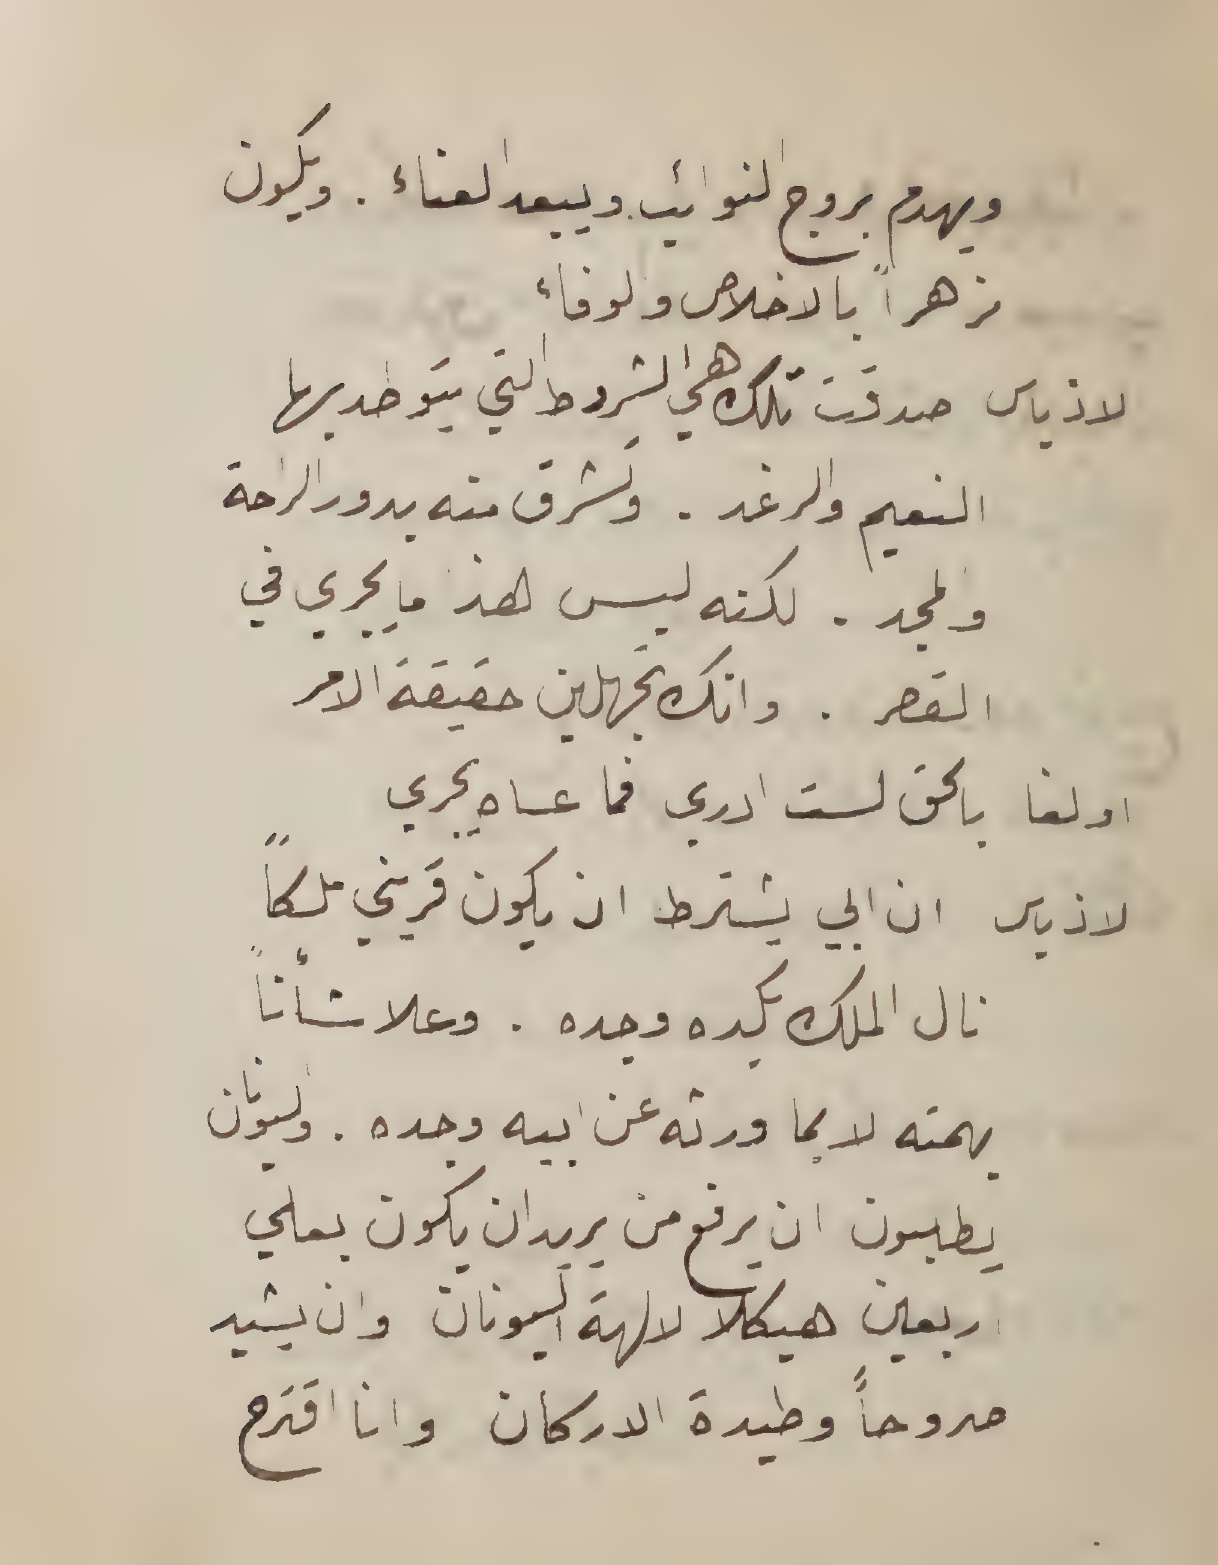 ويهدم بروج النوائب ويبعد العناء . ويكون
مزهراً بالاخلاص والوفاء
لاذياس صدقت تلك هي الشروط التي يتوطد بها
النعيم والرغد . وتشرق منه بدور الراحة
والمجد . لكنه ليس هذا ما يجري في
القصر . وانك تجهلين حقيقة الامر
اولغا بالحق لست ادري فما عساه يجري
لاذياس ان ابي يشترط ان يكون قريني ملكاً
نال الملك بكده وجده . وعلا شأناً
بهمته لا بما ورثه عن ابيه وجده . واليونان
يطلبون ان يرفع من يريد ان يكون بعلي
اربعين هيكلا لالهة اليونان وان يشيد
صروحاً وطيدة الاركان وانا اقترح